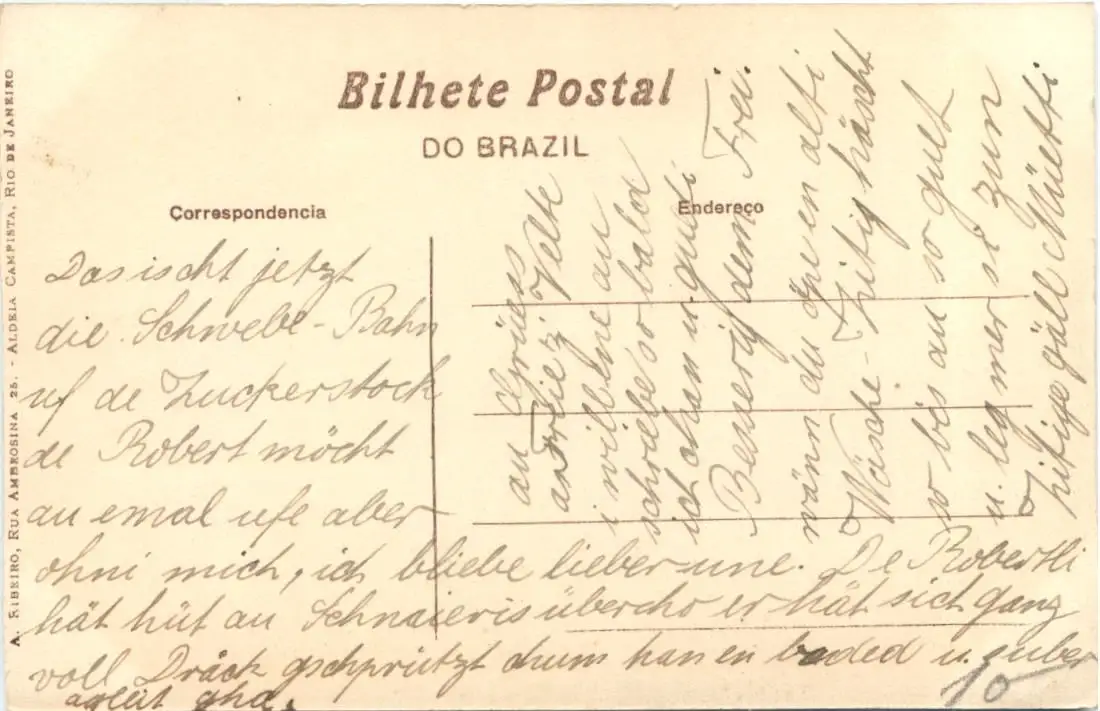 Bilhete Postal
DO BRAZIL
Correspondencia
Endereço
A. RIBEIRO, RUA AMBROSINA 25. - ALDEIA CAMPISTA, RIO DE JANEIRO
Das ischt jetzt
die Schwebe-Bahn
uf de Zuckerstock
de Robert möcht
au emal ufe aber
ohni mich, ich bliebe lieber une. De Robertli
hät hüt au Schnaieris übercho er hät sich ganz
voll Dräck gschprützt drum han en baded u. suber
agleit gha.
au Grües
a Friez' Velte
i will ene au
schriebe so bald
ich cham u. gueti
Besserig dem Frei.
wänn du öpe en alti
Wäsche-Zitig häscht
so bis au so guet
u. leg mer si zun
Zitige gäll Müetti
10